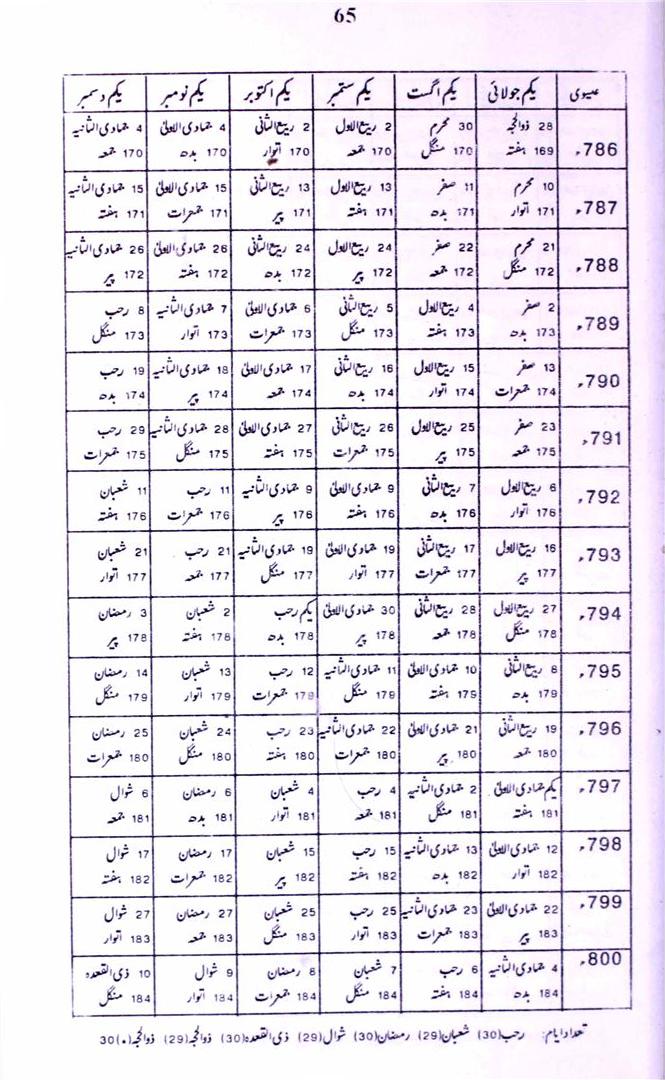 65
عیسوی یکم جولائی یکم اگست یکم ستمبر یکم اکتوبر یکم نومبر یکم دسمبر
786ء 28 ذوالحجہ 30 محرم 2 ربیع الاول 2 ربیع الثانی 4 جمادی الاولیٰ 4 جمادی الثانیہ
169 ہفتہ 170 منگل 170 جمعہ 170 اتوار 170 بدھ 170 جمعہ
787ء 10 محرم 11 صفر 13 ربیع الاول 13 ربیع الثانی 15 جمادی الاولیٰ 15 جمادی الثانیہ
171 اتوار 171 بدھ 171 ہفتہ 171 پیر 171 جمعرات 171 ہفتہ
788ء 21 محرم 22 صفر 24 ربیع الاول 24 ربیع الثانی 26 جمادی الاولیٰ 26 جمادی الثانیہ
172 منگل 172 جمعہ 172 پیر 172 بدھ 172 ہفتہ 172 پیر
789ء 2 صفر 4 ربیع الاول 5 ربیع الثانی 6 جمادی الاولیٰ 7 جمادی الثانیہ 8 رجب
173 بدھ 173 ہفتہ 173 منگل 173 جمعرات 173 اتوار 173 منگل
790ء 13 صفر 15 ربیع الاول 16 ربیع الثانی 17 جمادی الاولیٰ 18 جمادی الثانیہ 19 رجب
174 جمعرات 174 اتوار 174 بدھ 174 جمعہ 174 پیر 174 بدھ
791ء 23 صفر 25 ربیع الاول 26 ربیع الثانی 27 جمادی الاولیٰ 28 جمادی الثانیہ 29 رجب
175 جمعہ 175 پیر 175 جمعرات 175 ہفتہ 175 منگل 175 جمعرات
792ء 6 ربیع الاول 7 ربیع الثانی 9 جمادی الاولیٰ 9 جمادی الثانیہ 11 رجب 11 شعبان
176 اتوار 176 بدھ 176 ہفتہ 176 پیر 176 جمعرات 176 ہفتہ
793ء 16 ربیع الاول 17 ربیع الثانی 19 جمادی الاولیٰ 19 جمادی الثانیہ 21 رجب 21 شعبان
177 پیر 177 جمعرات 177 اتوار 177 منگل 177 جمعہ 177 اتوار
794ء 27 ربیع الاول 28 ربیع الثانی 30 جمادی الاولیٰ یکم رجب 2 شعبان 3 رمضان
178 منگل 178 جمعہ 178 پیر 178 بدھ 178 ہفتہ 178 پیر
795ء 8 ربیع الثانی 10 جمادی الاولیٰ 11 جمادی الثانیہ 12 رجب 13 شعبان 14 رمضان
179 بدھ 179 ہفتہ 179 منگل 179 جمعرات 179 اتوار 179 منگل
796ء 19 ربیع الثانی 21 جمادی الاولیٰ 22 جمادی الثانیہ 23 رجب 24 شعبان 25 رمضان
180 جمعہ 180 پیر 180 جمعرات 180 ہفتہ 180 منگل 180 جمعرات
797ء یکم جمادی الاولیٰ 2 جمادی الثانیہ 4 رجب 4 شعبان 6 رمضان 6 شوال
181 ہفتہ 181 منگل 181 جمعہ 181 اتوار 181 بدھ 181 جمعہ
798ء 12 جمادی الاولیٰ 13 جمادی الثانیہ 15 رجب 15 شعبان 17 رمضان 17 شوال
182 اتوار 182 بدھ 182 ہفتہ 182 پیر 182 جمعرات 182 ہفتہ
799ء 22 جمادی الاولیٰ 23 جمادی الثانیہ 25 رجب 25 شعبان 27 رمضان 27 شوال
183 پیر 183 جمعرات 183 اتوار 183 منگل 183 جمعہ 183 اتوار
800ء 4 جمادی الثانیہ 6 رجب 7 شعبان 8 رمضان 9 شوال 10 ذی القعدہ
184 بدھ 184 ہفتہ 184 منگل 184 جمعرات 184 اتوار 184 منگل
تعداد ایام: رجب(30) شعبان(29) رمضان(30) شوال(29) ذی القعدہ(30) ذوالحجہ(29) ذوالحجہ(٠)30